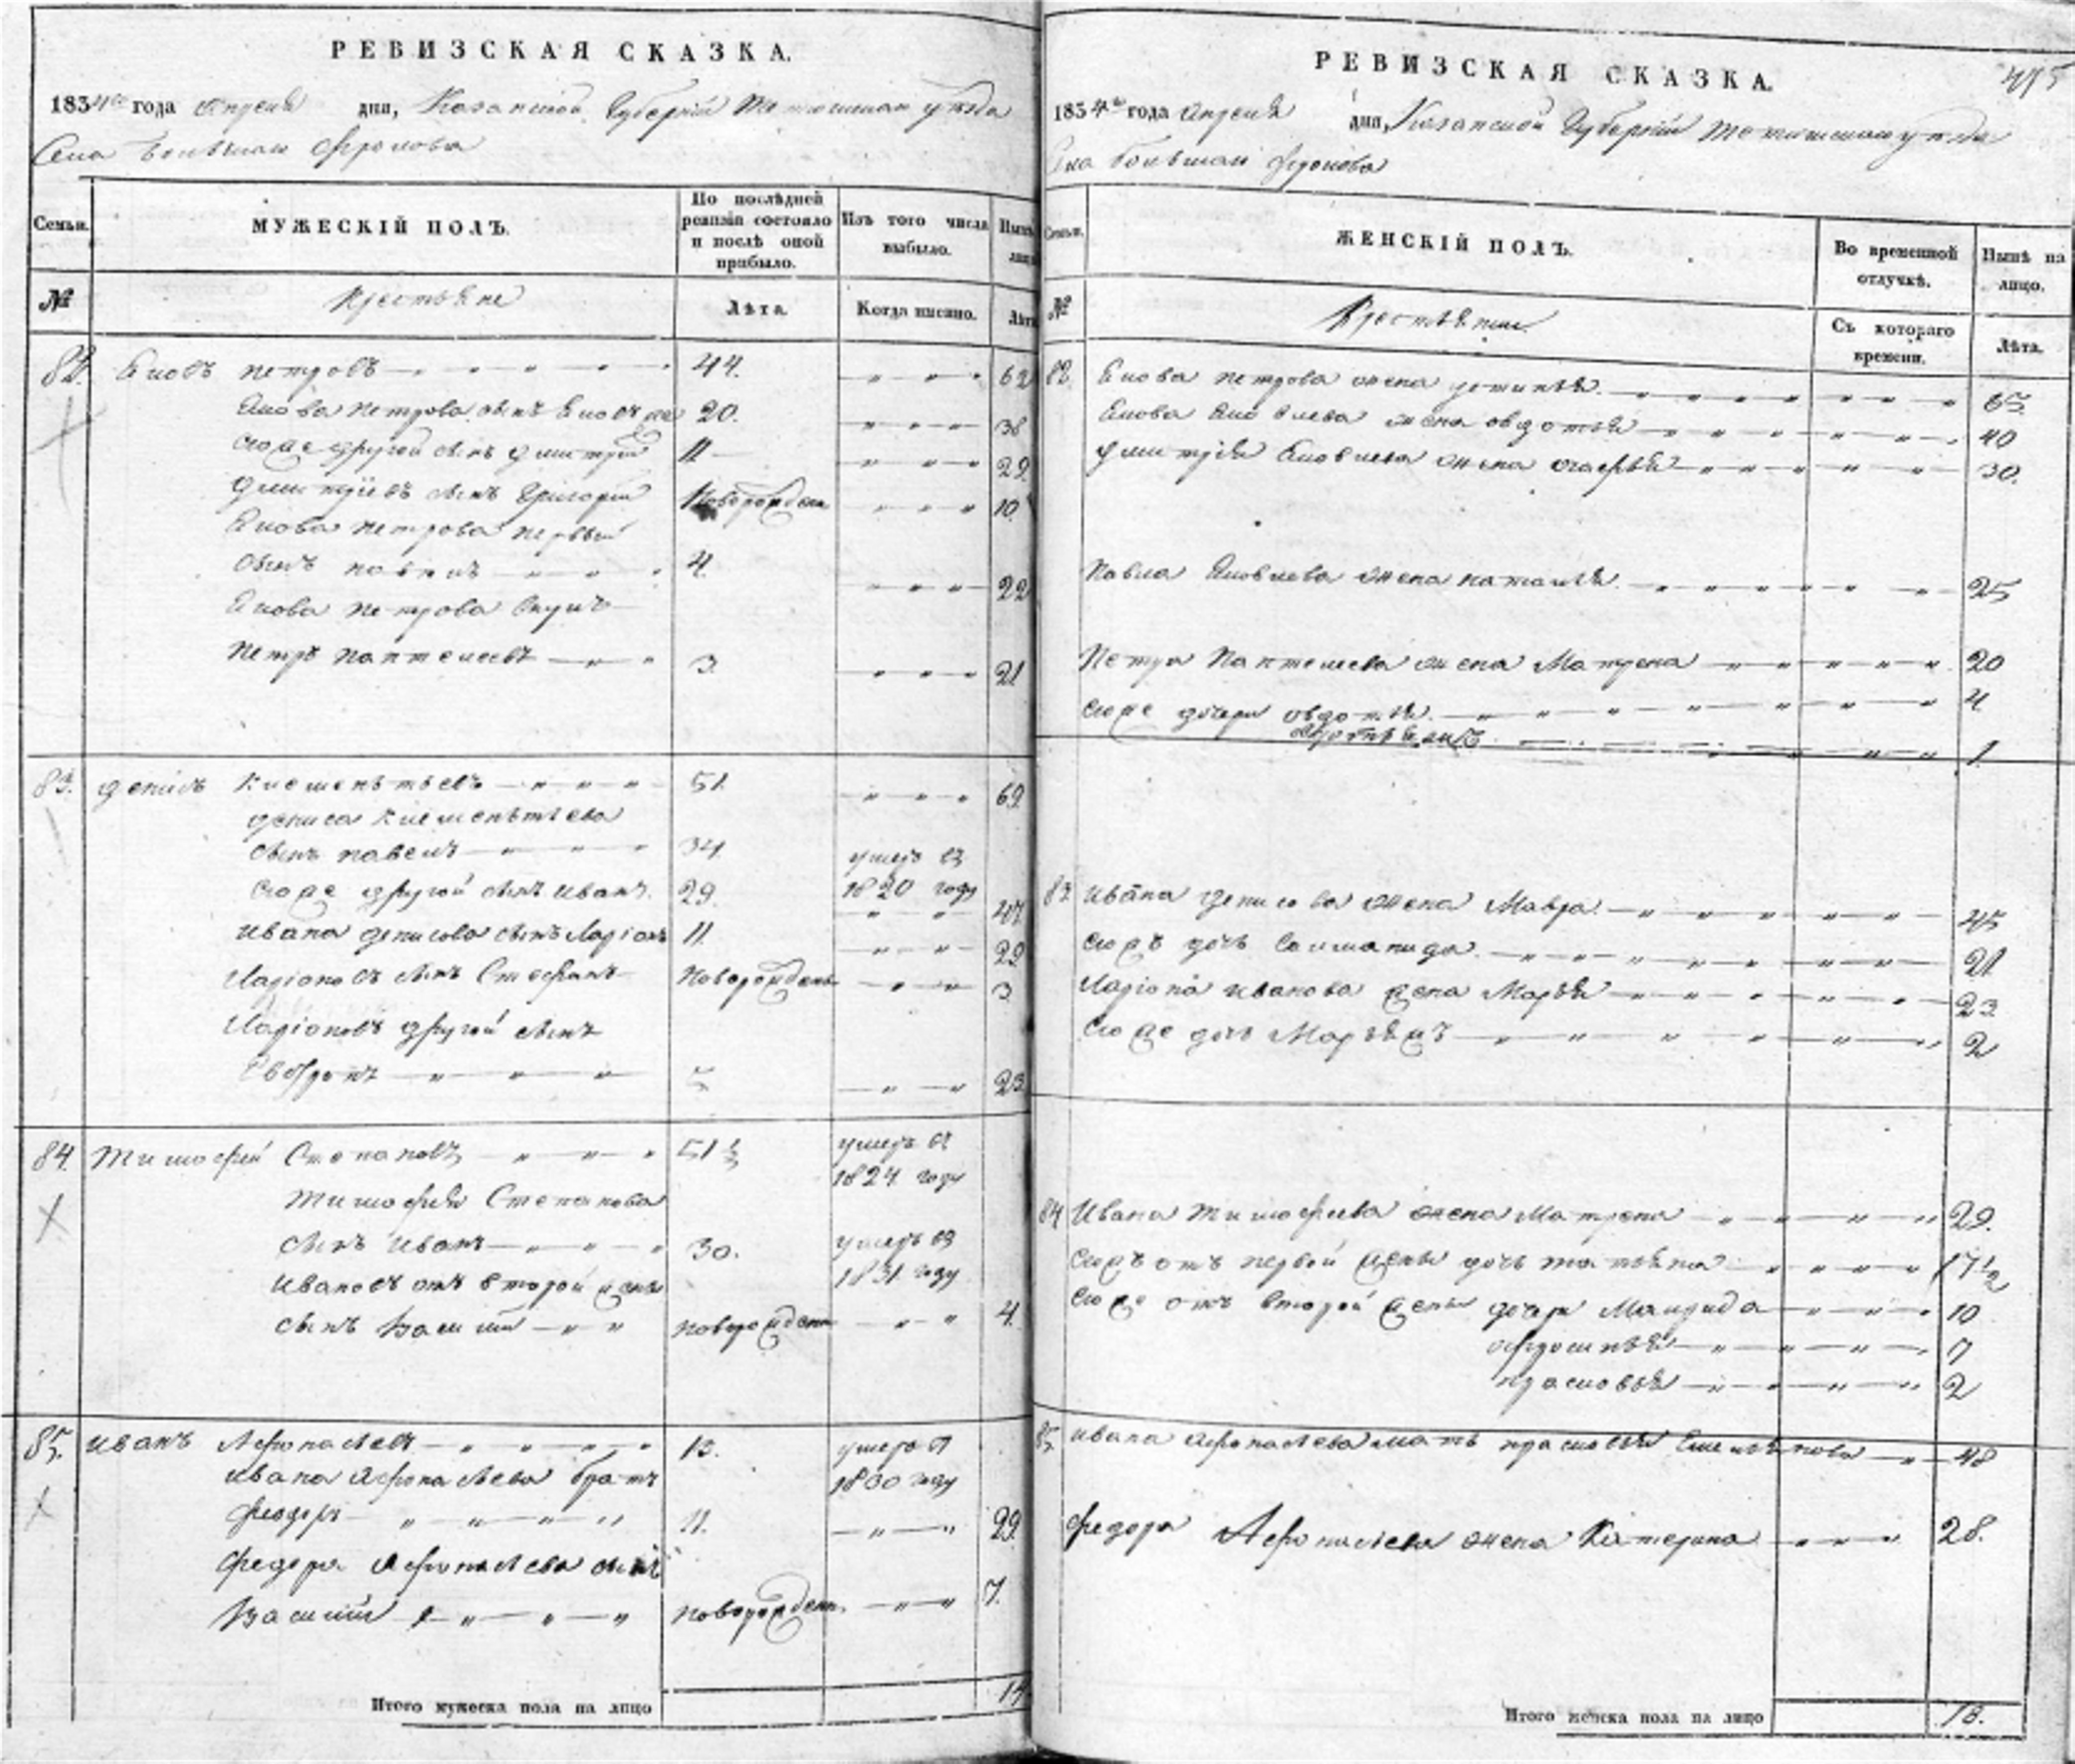 РЕВИЗСКАЯ СКАЗКА.
1834го года Апреля дня, Казанской Губернiи Тетюшскаго уезда
Села большаи Фролова
Семьи.
МУЖЕСКIЙ ПОЛЪ.
По послѣдней ревизiи состояло и послѣ оной прибыло.
Изъ того числа выбыло.
№
Крестьяне
Лѣта.
Когда именно.
82. Яковъ петровъ 44. 62
Якова петрова сынъ Яковъ же 20. 38
Ево же другой сынъ дмитрiй 11 29
дмитрiевъ сынъ Григорiй Новорожденъ 10
Якова петрова первый
сынъ павелъ 4. 22
Якова петрова внукъ
Петръ пантелеевъ 3. 21
83. денисъ климентьевъ 51. 69
дениса климентьева
сынъ павелъ 34. умеръ въ
Ево же другой сынъ иванъ. 29. 1820 году 47
ивана денисова сынъ Ларiонъ 11. 29
Ларiоновъ сынъ Стефанъ Новорожденъ 3
Ларiоновъ другой сынъ
5 23
84. тимофей Степановъ 51½ умеръ въ
1824 году
тимофея Степанова
сынъ иванъ 30. умеръ въ
ивановъ отъ второй жены 1831 году
сынъ василiй новорожденъ 4.
85. иванъ Афонасьевъ 12. умеръ въ
ивана Афонасьева братъ 1830 году
федоръ 11. 29.
федора Афонасьева сынъ
Василiй новорожденъ 7.
Итого мужеска пола на лицо 14
РЕВИЗСКАЯ СКАЗКА.
1834го года Апреля дня, Казанской Губернiи Тетюшскаго уезда
Села большаи Фролова
Семьи.
ЖЕНСКIЙ ПОЛЪ.
Во временной отлучкѣ.
Нынѣ на лицо.
№
Съ котораго времени.
Лѣта.
82 Якова петрова жена устинья 65
Якова Яковлева жена овдотья 40
дмитрiя Яковлева жена 30.
Павла Яковлева жена наталья 25
Петра Пантелеева жена Матрена 20
Ево же дочери овдотья 4
1.
83 ивана денисова жена Мавра 45
Ево дочь Соломанида 21
Ларiона иванова жена Марья 23
Ево же дочь 2
84 Ивана тимофеева жена Матрена 29.
Ево отъ первой жены дочь татьяна 17½
Ево же отъ второй жены дочери 10
офросинья 7
прасковья 2
85. ивана Афонасьева мать прасковья Емельянова 48
федора Афонасьева жена Катерина 28.
Итого женска пола на лицо 18.